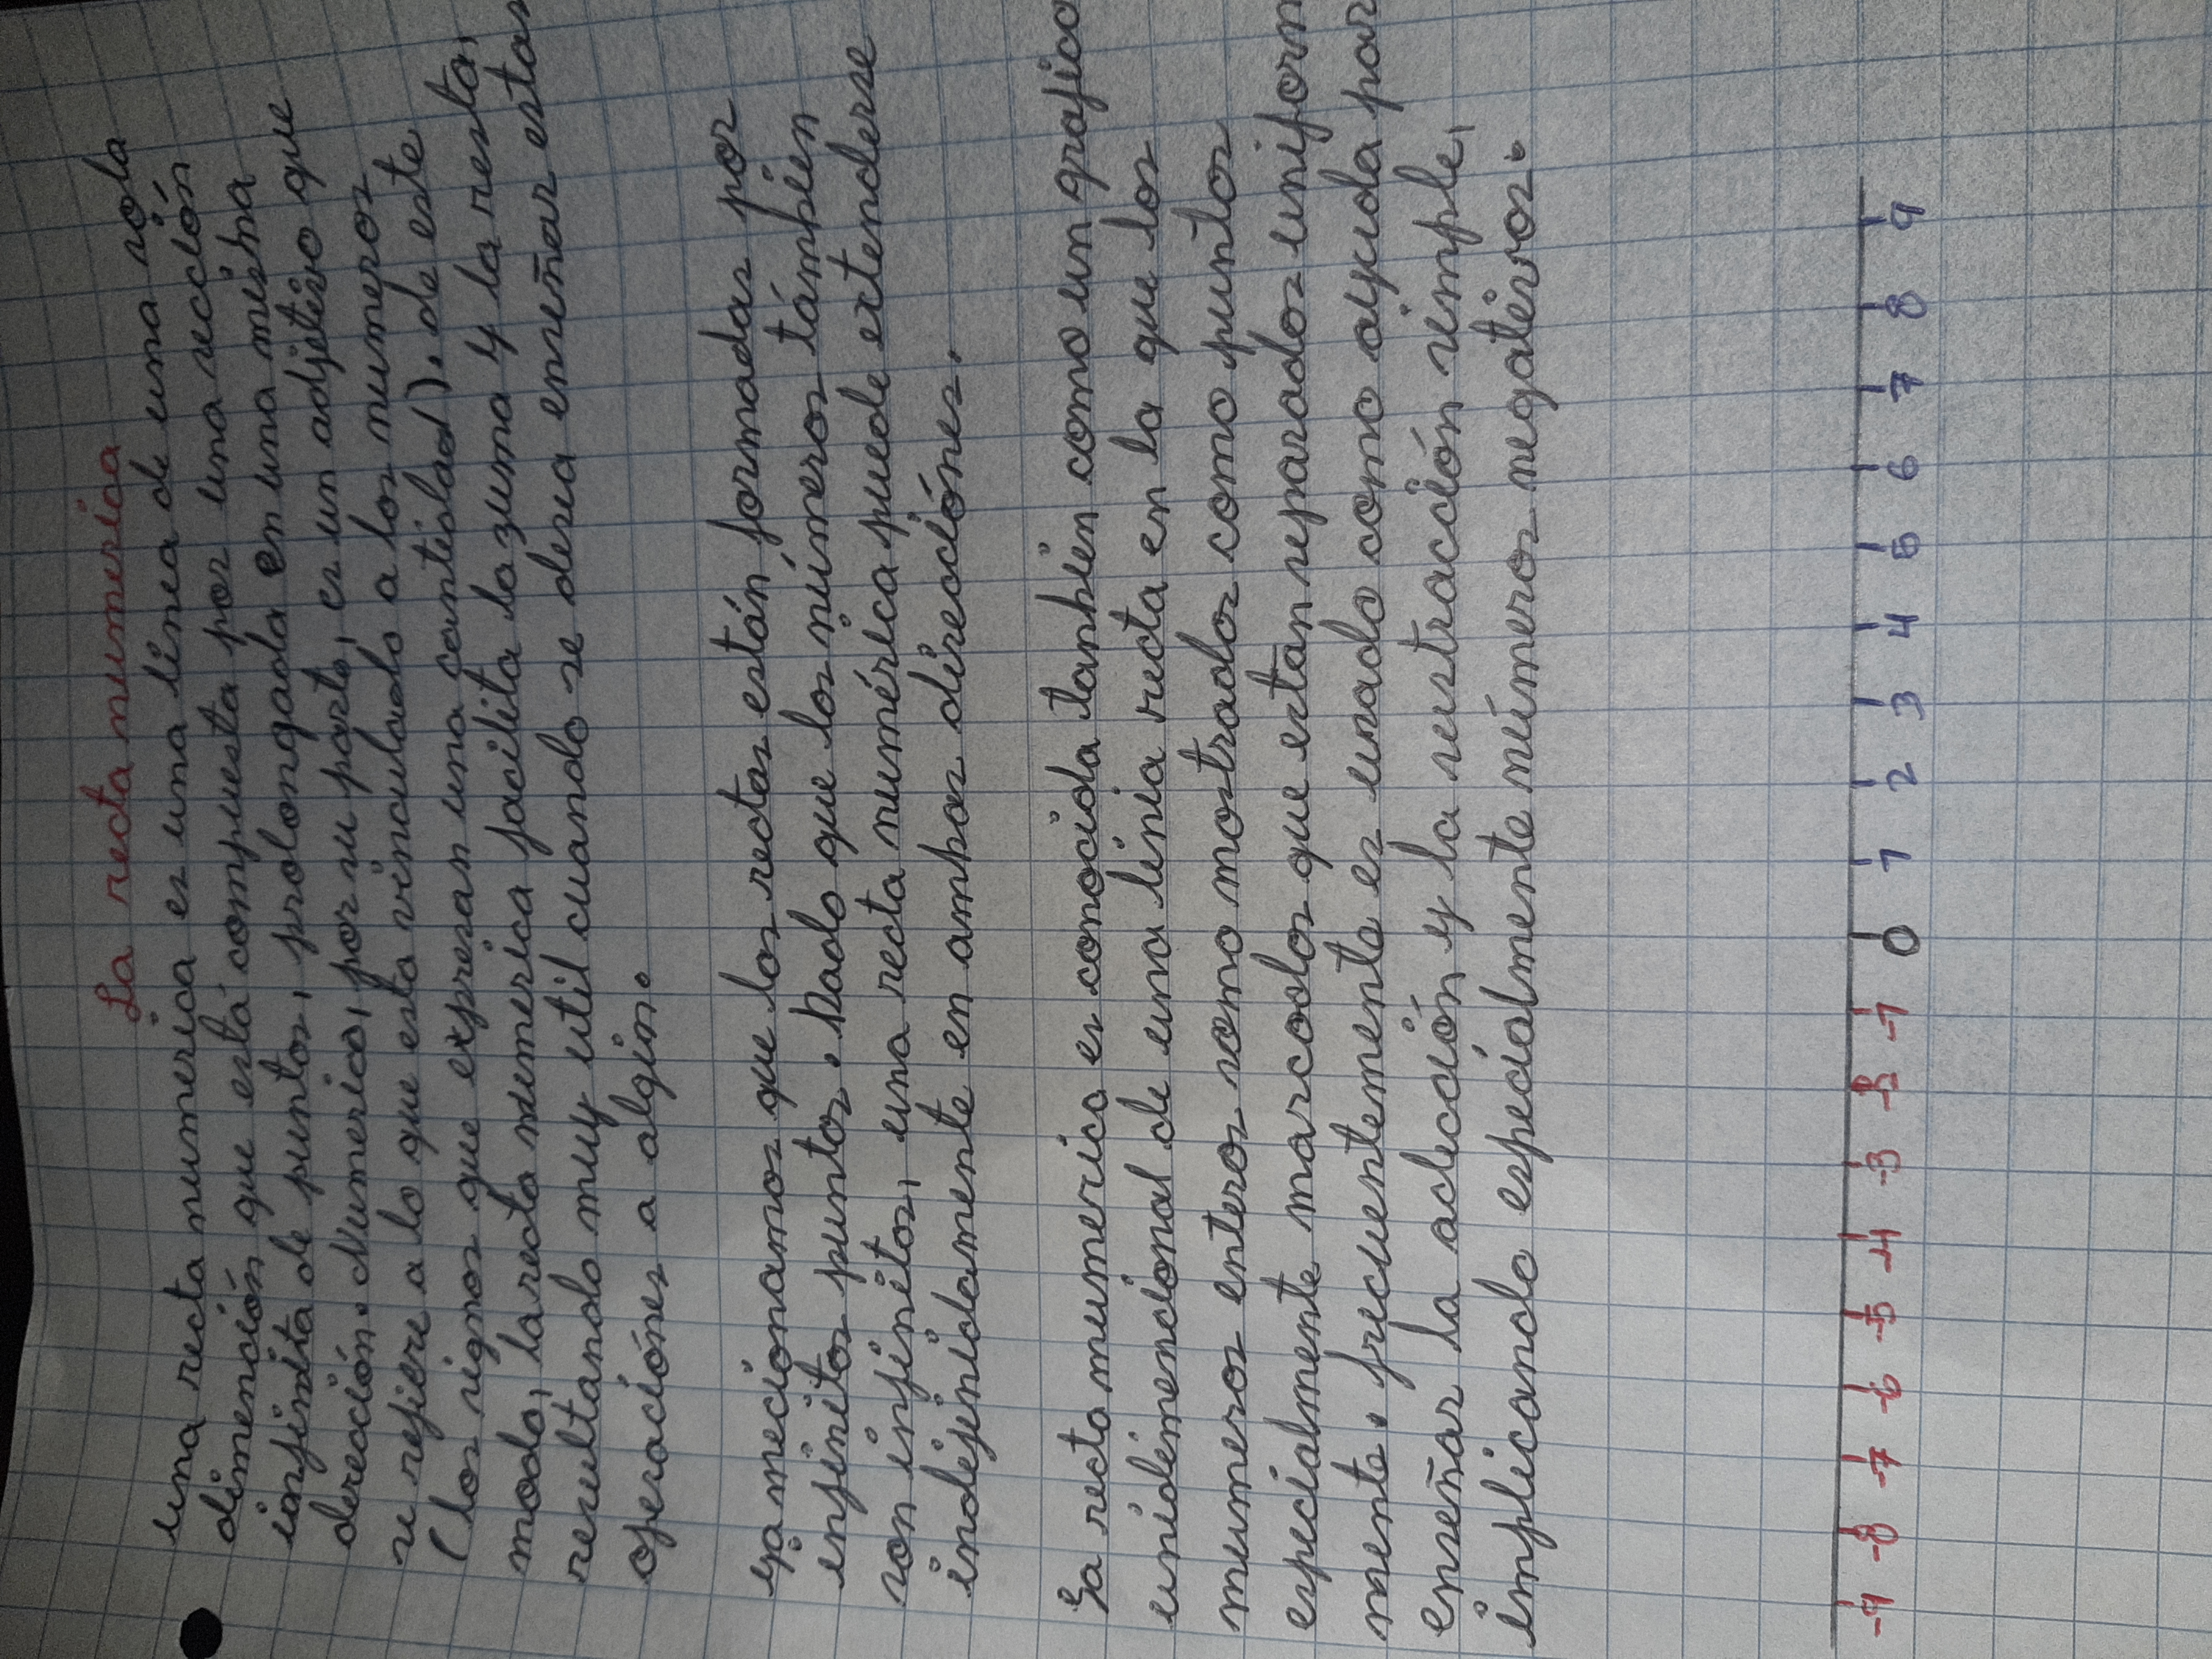 La recta numerica
una recta numerica es una línea de una sola
dimención que está compuesta por una sección
infinita de puntos, prolongada en una misma
dirección. Numerico, por su parte, es un adjetivo que
se refiere a lo que esta vinculado a los numeros
(los signos que expresan una cantidad). de este
modo, la recta numerica facilita la zuma y la resta,
resultando muy util cuando se desea enseñar estas
operaciónes a algin.
ya mecionamos que las rectas están formadas por
infinitos puntos. Dado que los números támbien
son infinitos, una recta numérica puede extenderse
indefinidamente en ambas direcciónes.
La recta numerica es conocida tambien como un grafico
unidimencional de una línia recta en la que los
numeros enteros somo mostrados como puntos
especialmente marcados que estan separados uniform
mente. frecuentemente es usado como ayuda par
enseñar la adicción y la sustracción simple,
implicando especialmente números negativos.
-9 -8 -7 -6 -5 -4 -3 -2 -1 0 1 2 3 4 5 6 7 8 9